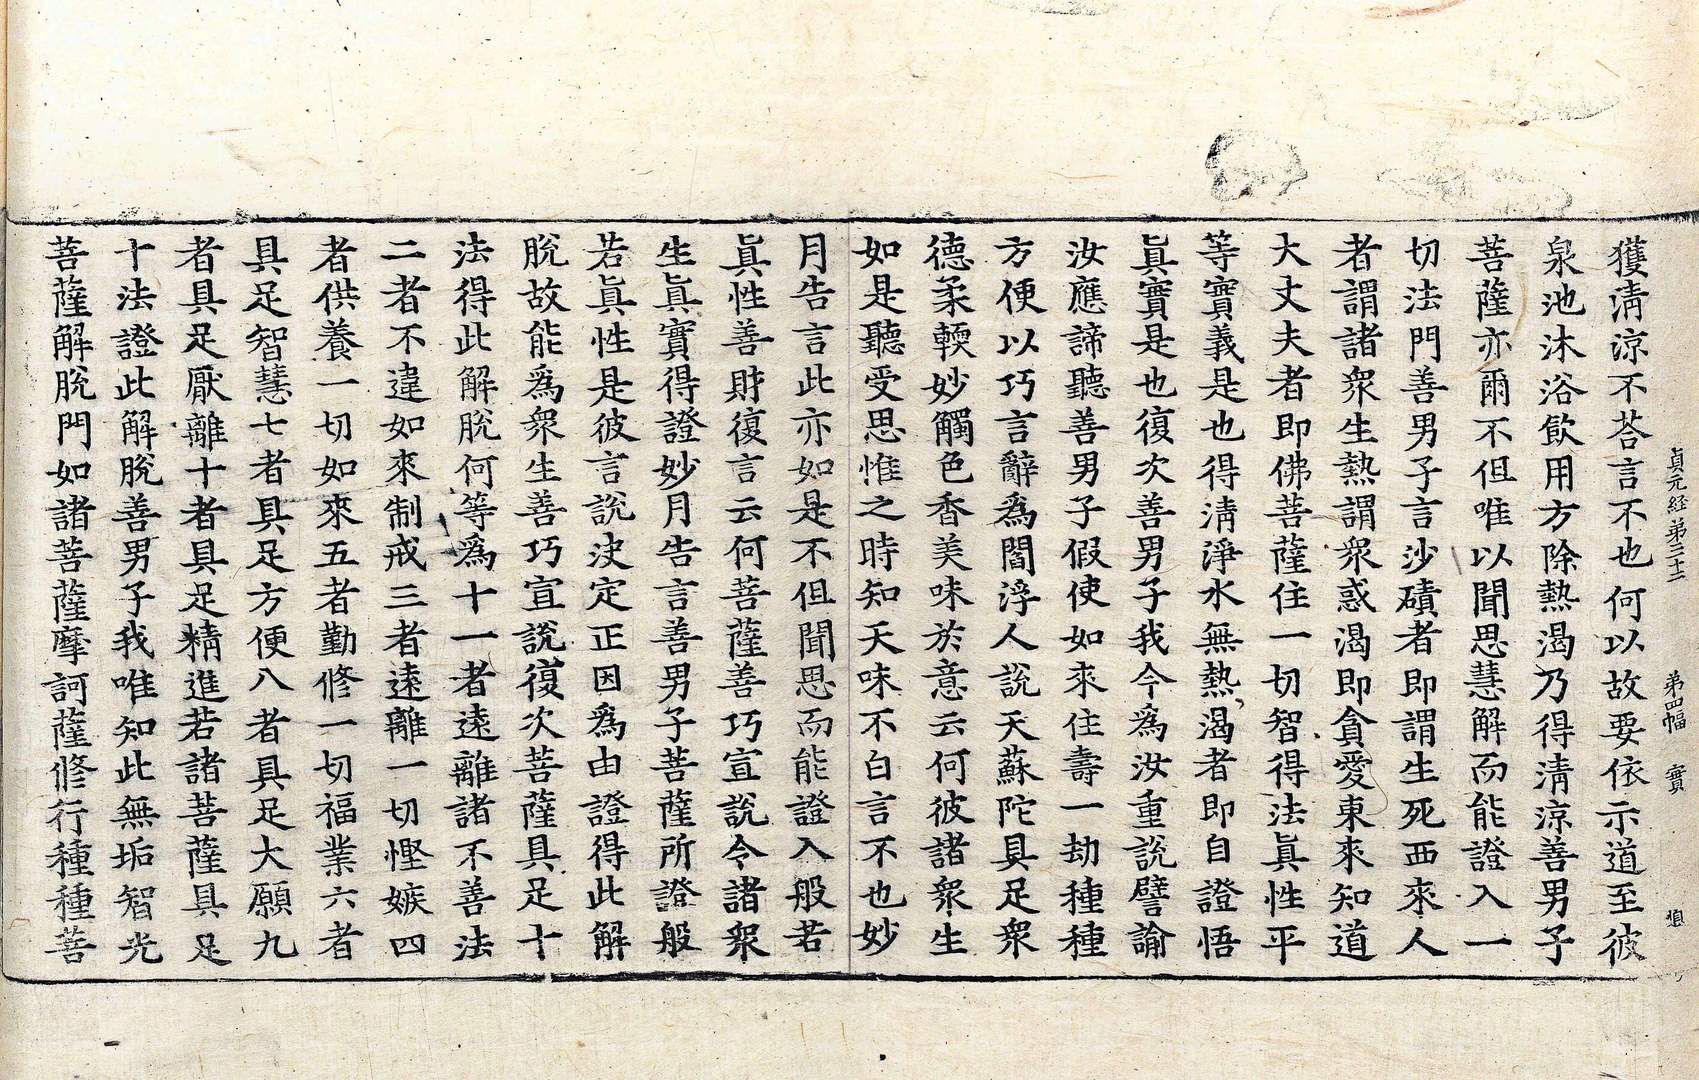 貞元経第三十二 第四幅 實
獲淸涼不荅言不也何以故要依示道至彼
泉池沐浴飮用方除熱渴乃得淸涼善男子
菩薩亦爾不但唯以聞思慧解而能證入一
切法門善男子言沙磧者即謂生死西來人
者謂諸衆生熱謂衆惑渴即貪愛東來知道
大丈夫者即佛菩薩住一切智得法眞性平
等實義是也得淸淨水無熱渴者即自證悟
眞實是也復次善男子我今爲汝重說譬諭
汝應諦聽善男子假使如來住壽一劫種種
方便以巧言辭爲閻浮人說天蘇陀具足衆
德柔輭妙觸色香美味於意云何彼諸衆生
如是聽受思惟之時知天味不白言不也妙
月告言此亦如是不但聞思而能證入般若
眞性善財復言云何菩薩善巧宣說令諸衆
生眞實得證妙月告言善男子菩薩所證般
若眞性是彼言說決定正因爲由證得此解
脫故能爲衆生善巧宣說復次菩薩具足十
法得此解脫何等爲十一者遠離諸不善法
二者不違如來制戒三者遠離一切慳嫉四
者供養一切如來五者勤修一切福業六者
具足智慧七者具足方便八者具足大願九
者具足厭離十者具足精進若諸菩薩具足
十法證此解脫善男子我唯知此無垢智光
菩薩解脫門如諸菩薩摩訶薩修行種種菩